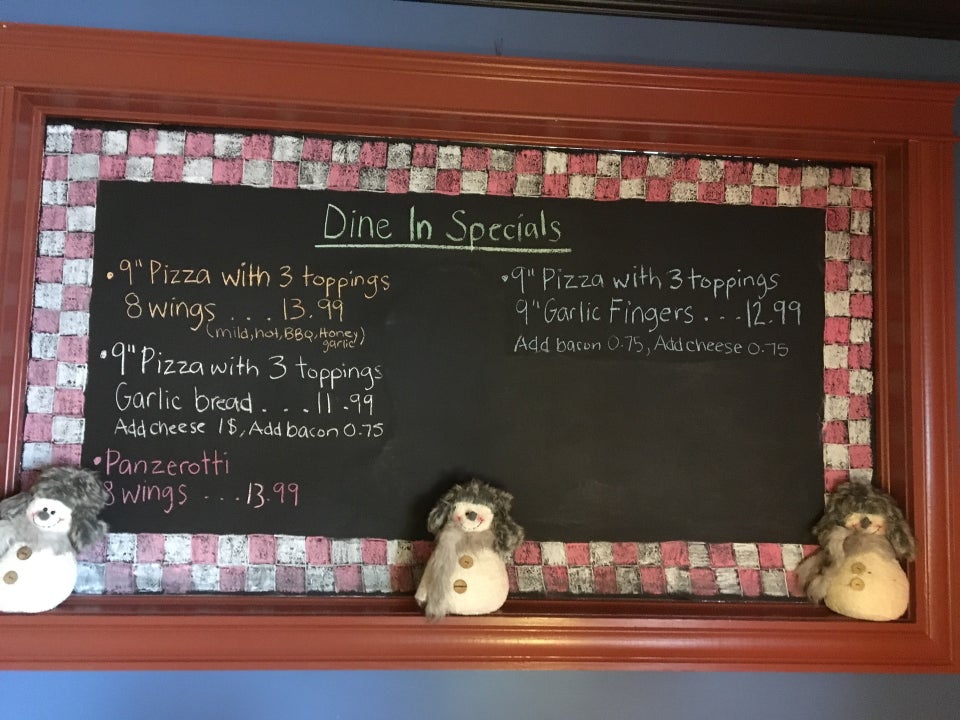 Dine In Specials
• 9" Pizza with 3 toppings
8 wings . . . 13.99
(mild, hot, BBQ, Honey
garlic)
• 9" Pizza with 3 toppings
Garlic bread . . . 11.99
Add cheese 1$, Add bacon 0.75
• Panzerotti
8 wings . . . 13.99
• 9" Pizza with 3 toppings
9" Garlic Fingers . . . 12.99
Add bacon 0.75, Add cheese 0.75